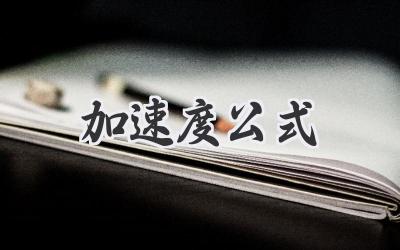 加速度公式